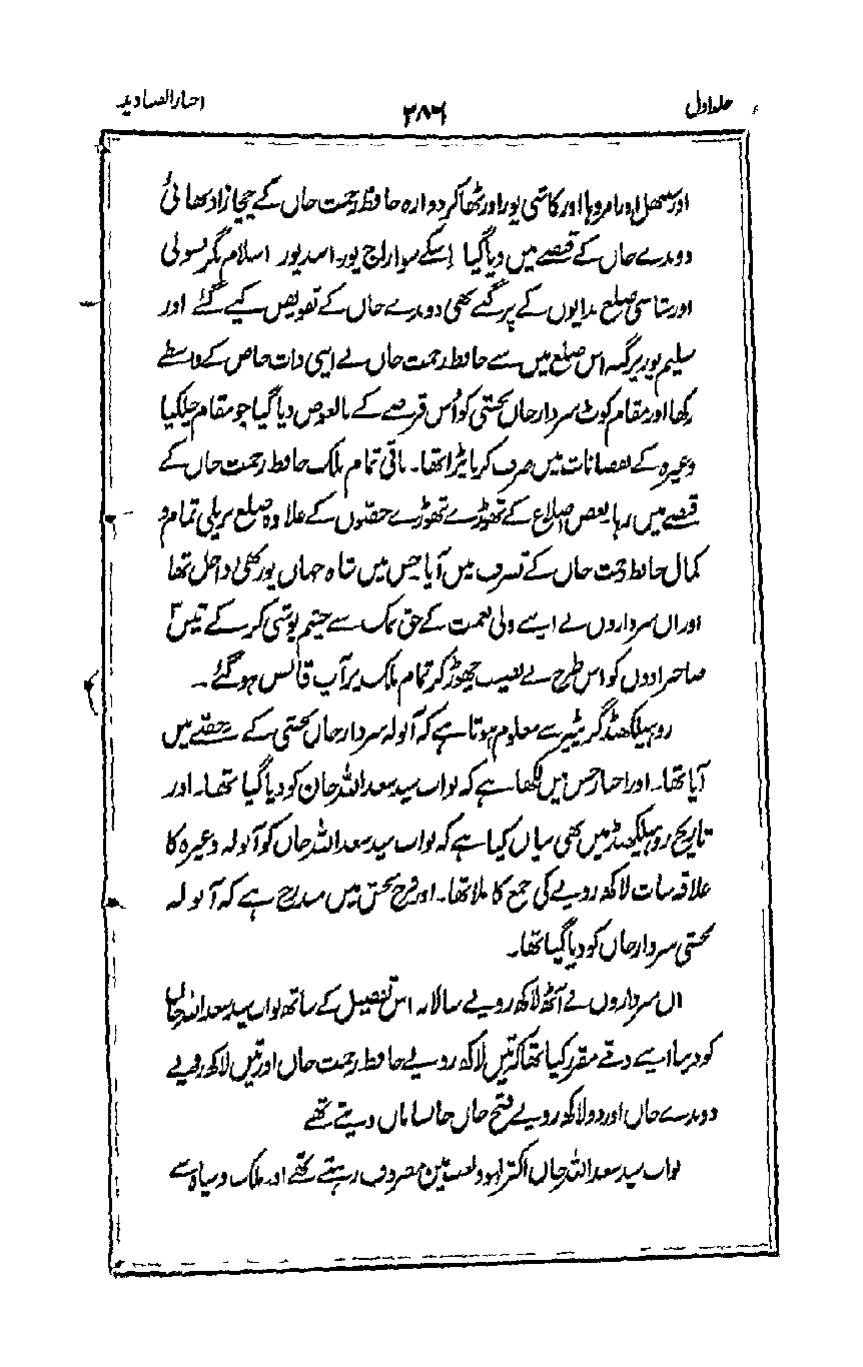 جلد اول
۳۸۶
اخبار الصنادید
اور سنبھل اور امروہا اور کاشی پور اور ٹھاکر دوارہ حافظ رحمت خاں کے چچازاد بھائی
دوندے خاں کے قبضے میں دیا گیا اِسکے سوا راج پور۔ اسد پور اسلام نگر بسولی
اور ستاسی ضلع بدایوں کے پرگنے بھی دوندے خاں کے تفویض کیے گئے اور
سلیم پور پرگنہ اس ضلع میں سے حافظ رحمت خاں نے اپنی ذات خاص کے واسطے
رکھا اور مقام کوٹ سردار خاں بخشی کو اُس قرضے کے بالعوض دیا گیا جو مقام چلکیا
وغیرہ کے نقصانات میں صرف کرنا پڑا تھا۔ باقی تمام ملک حافظ رحمت خاں کے
قبضے میں رہا بعض اضلاع کے تھوڑے تھوڑے حصّوں کے علاوہ ضلع بریلی تمام و
کمال حافظ رحمت خاں کے تصرف میں آیا جس میں شاہ جہاں پور بھی داخل تھا
اور اں سرداروں نے اپنے ولی نعمت کے حق نمک سے چشم پوشی کر کے تیس
صاحبزادوں کو اس طرح بے نصیب چھوڑ کر تمام ملک پر آپ قابض ہو گئے۔
روہیلکھنڈ گزیٹیر سے معلوم ہوتا ہے کہ آنولہ سردار خاں بخشی کے حصّے میں
آیا تھا۔ اور اخبار حسن میں لکھا ہے کہ نواب سید سعد اللہ خان کو دیا گیا تھا۔ اور
تاریخ روہیلکھنڈ میں بھی بیاں کیا ہے کہ نواب سید سعد اللہ خاں کو آنولہ وغیرہ کا
علاقہ سات لاکھ روپے کی جمع کا ملا تھا۔ اور فرح بخش میں مندرج ہے کہ آنولہ
بخشی سردار خاں کو دیا گیا تھا۔
اں سرداروں نے آٹھ لاکھ روپے سالانہ اس تفصیل کے ساتھ نواب سید سعد اللہ خاں
کو دینا اپنے ذمے مقرر کیا تھا کہ تیں لاکھ روپے حافظ رحمت خاں اور تیں لاکھ روپیے
دوندے خاں اور دو لاکھ روپے فتح خاں خانساماں دیتے تھے
نواب سید سعد اللہ خاں اکثر لہو و لعب میں مصروف رہتے تھے اور ملک و سپاہ سے